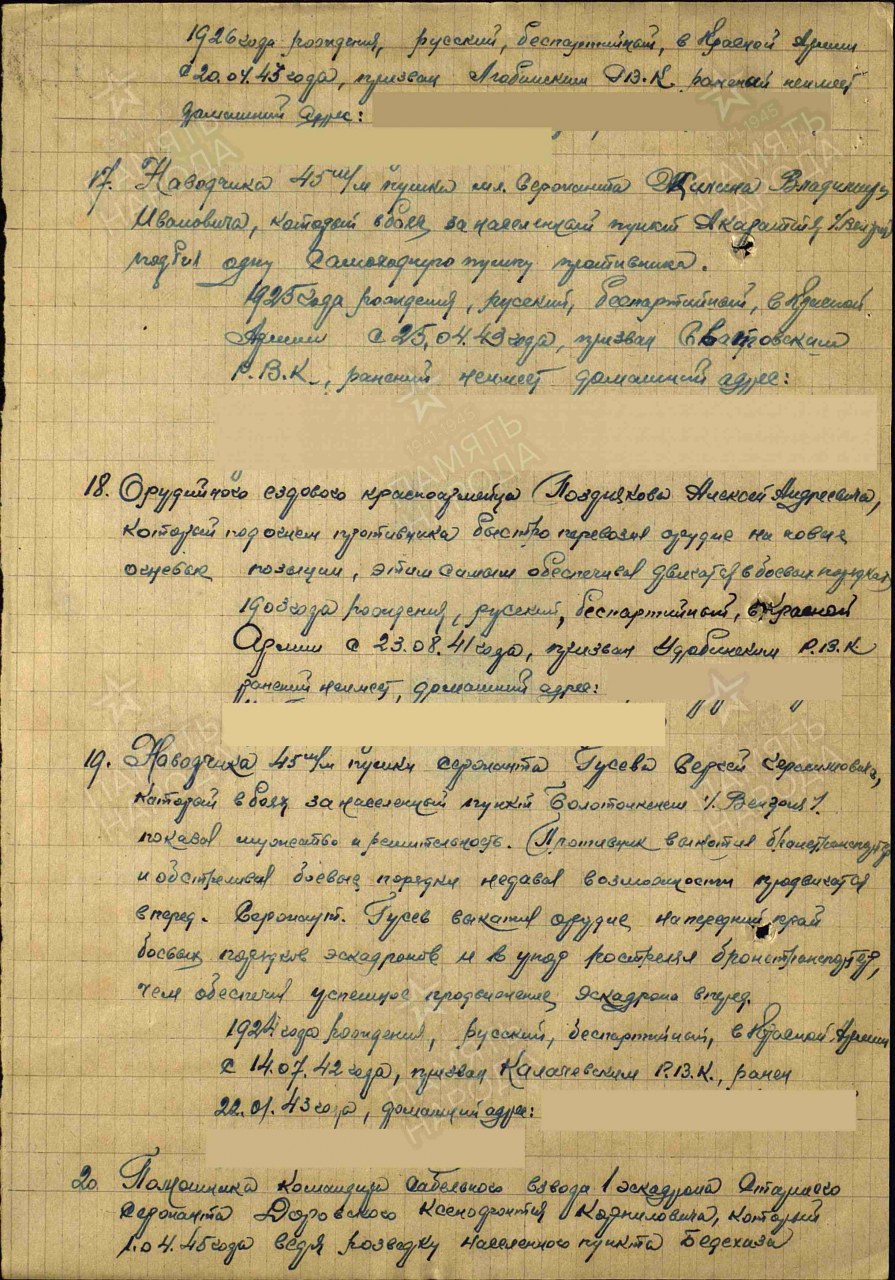 1926 года рождения, русский, беспартийный, в Красной Армии
с 20.04.43 года, призван Любимским Р.В.К. ранений неимеет
домашний адрес:
17. Наводчика 45 м/м пушки мл. сержанта Владимира
Ивановича, который в боях за населенный пункт
подбил одну самоходную пушку противника.
1925 года рождения, русский, беспартийный, в Красной
Армии с 25.04.43 года, призван
Р.В.К., ранений неимеет домашний адрес:
18. Орудийного ездового красноармейца Позднякова Алексей Андреевича,
который под огнем противника быстро перевозил орудие на новые
огневые позиции, этим самым обеспечивал двигатся в боевых порядках
1903 года рождения, русский, беспартийный, в Красной
Армии с 23.08.41 года, призван Р.В.К
ранений неимеет, домашний адрес:
19. Наводчика 45 м/м пушки сержанта Гусева Сергей
который в боях за населенный пункт /Венгрия/
показал мужество и решительность. Противник выкотил бронетранспортер
и обстреливая боевые порядки недавал возможности продвигатся
вперед. Сержант. Гусев выкатил орудие на передний край
боевых порядков эскадронов и в упор ростреля бронетранспортер,
чем обеспечил успешное продвижение эскадрона вперед.
1924 года рождения, русский, беспартийный, в Красной Армии
с 14.07.42 года, призван Калачевским Р.В.К., ранен
22.01.43 года, домашний адрес:
20 Помошника командира сабельного взвода 1 эскадрона старшего
сержанта Корниловича, который
1.04.45 года ведя розведку населенного пункта